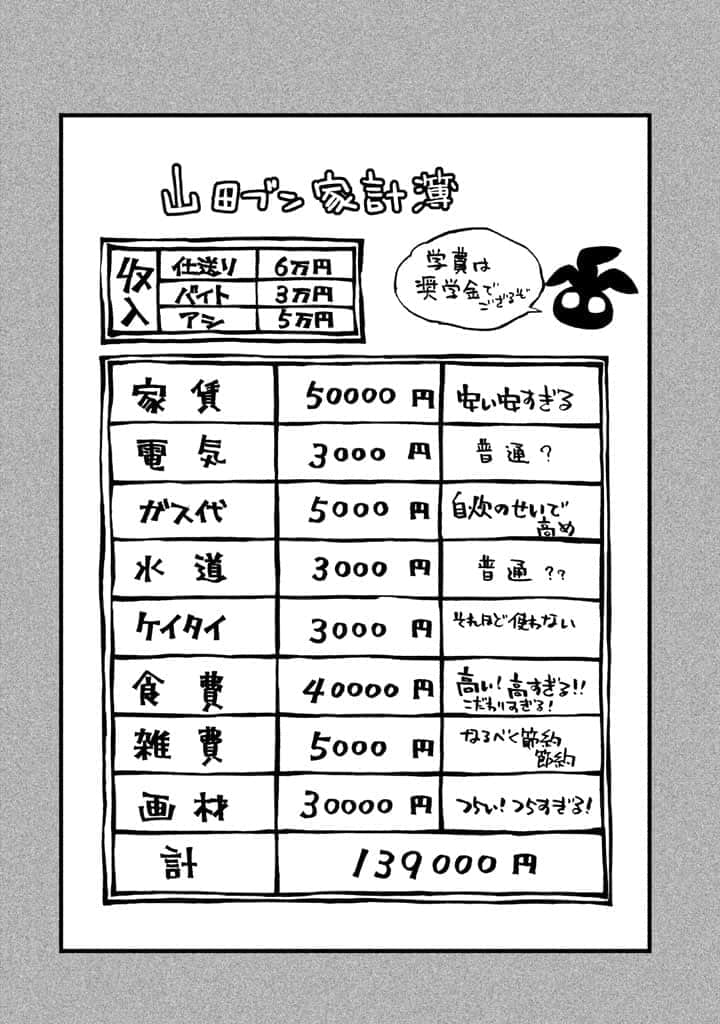 山田ブン家計簿
収入
仕送り 6万円
バイト 3万円
アシ 5万円
学費は
奨学金で
ござるぞ
家賃 50000円 安い安すぎる
電気 3000円 普通?
ガス代 5000円 自炊のせいで
高め
水道 3000円 普通??
ケイタイ 3000円 それほど使わない
食費 40000円 高い!高すぎる!!
こだわりすぎる!
雑費 5000円 なるべく節約
節約
画材 30000円 つらい!つらすぎる!
計 139000円